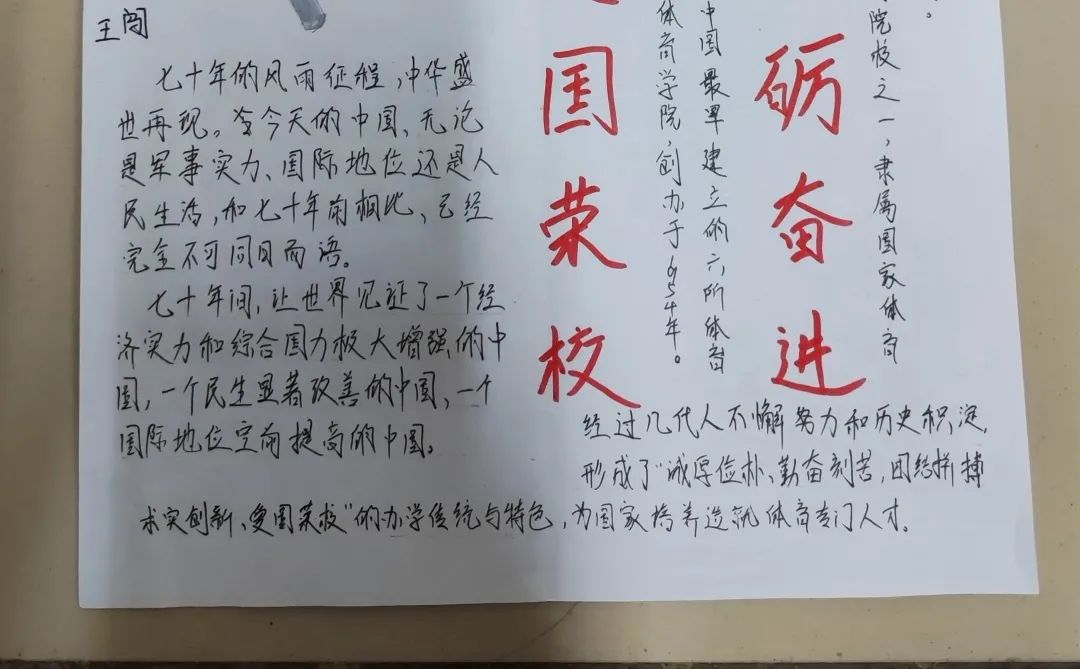 王闯
七十年的风雨征程,中华盛
世再现。今天的中国、无论
是军事实力、国际地位还是人
民生活,和七十年前相比、已经
完全不可同日而语。
七十年间,让世界见证了一个经
济实力和综合国力极大增强的中
国,一个民生显著改善的中国,一个
国际地位空前提高的中国。
院校之一,隶属国家体育
砺奋进
中国最早建立的六所体育
体育学院,创办于1954年。
国荣校
经过几代人不懈努力和历史积淀,
形成了"诚厚俭朴、勤奋刻苦,团结拼搏
求实创新、爱国荣校"的办学传统与特色,为国家培养造就体育专门人才。